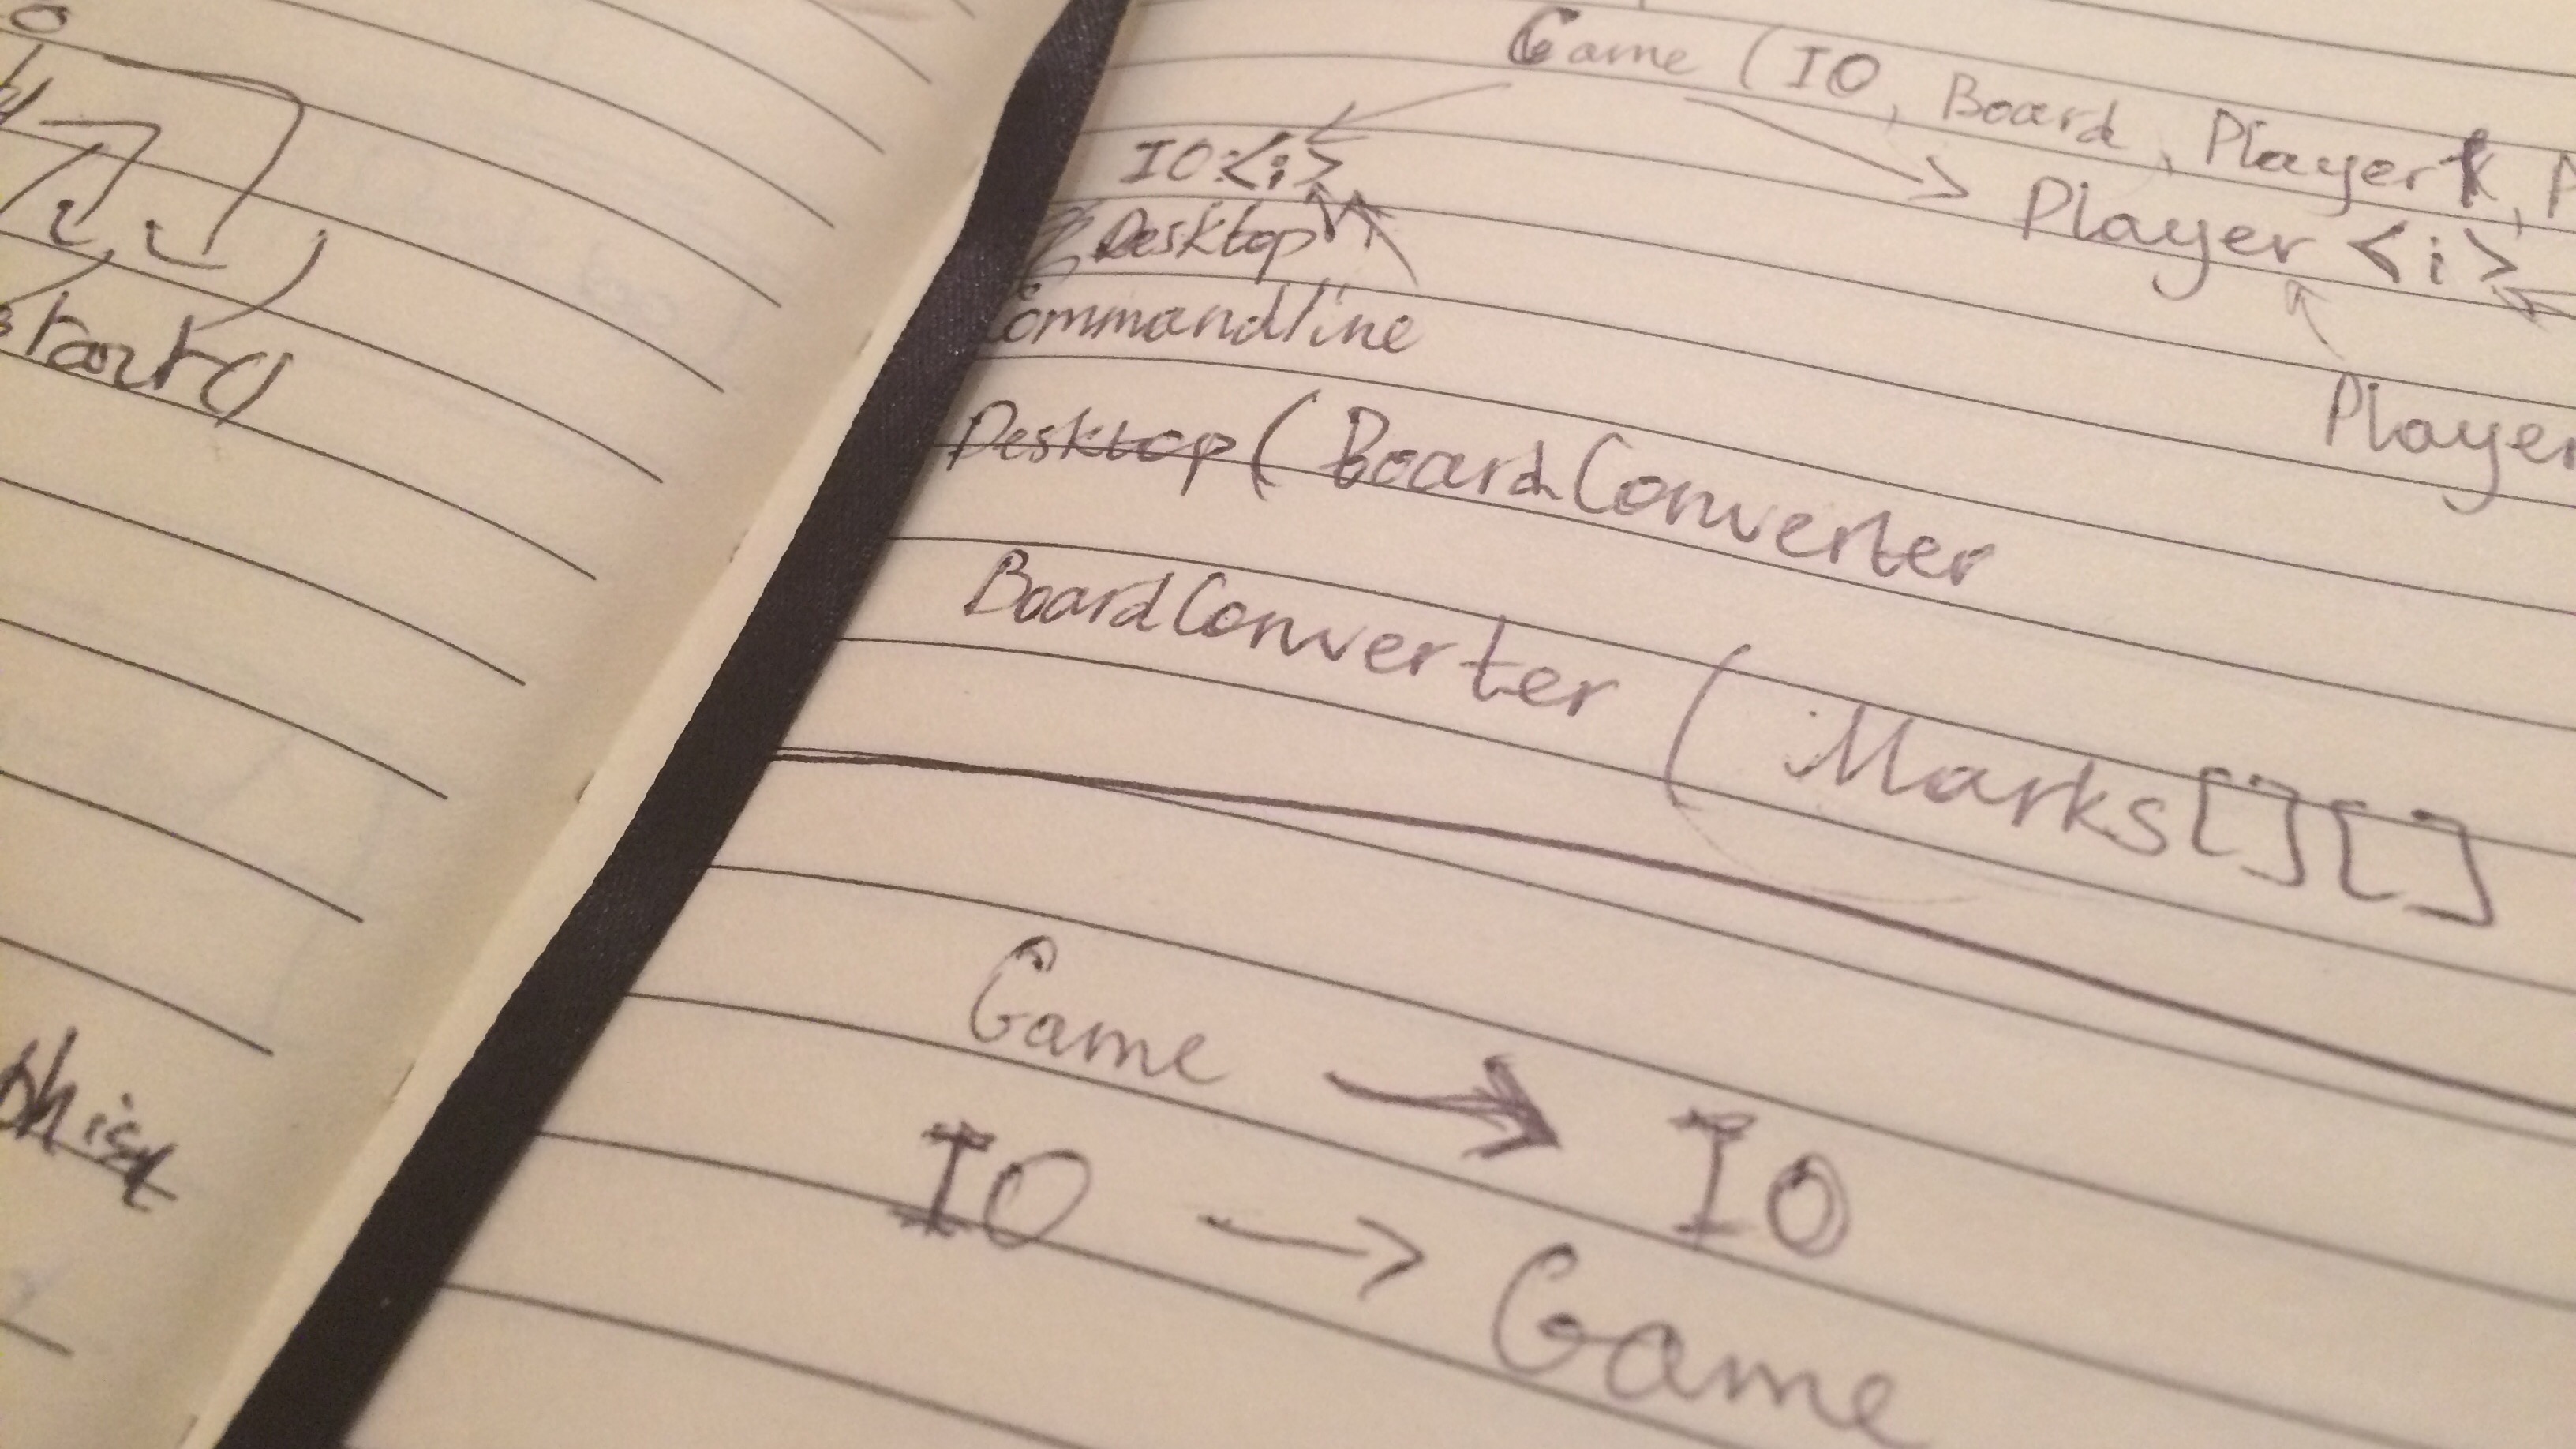 start()
Game (IO, Board, Player
IO <i>
Player <i>
Desktop
Commandline
Player
Desktop ( BoardConverter
BoardConverter ( Marks[][]
Game → IO
IO → Game